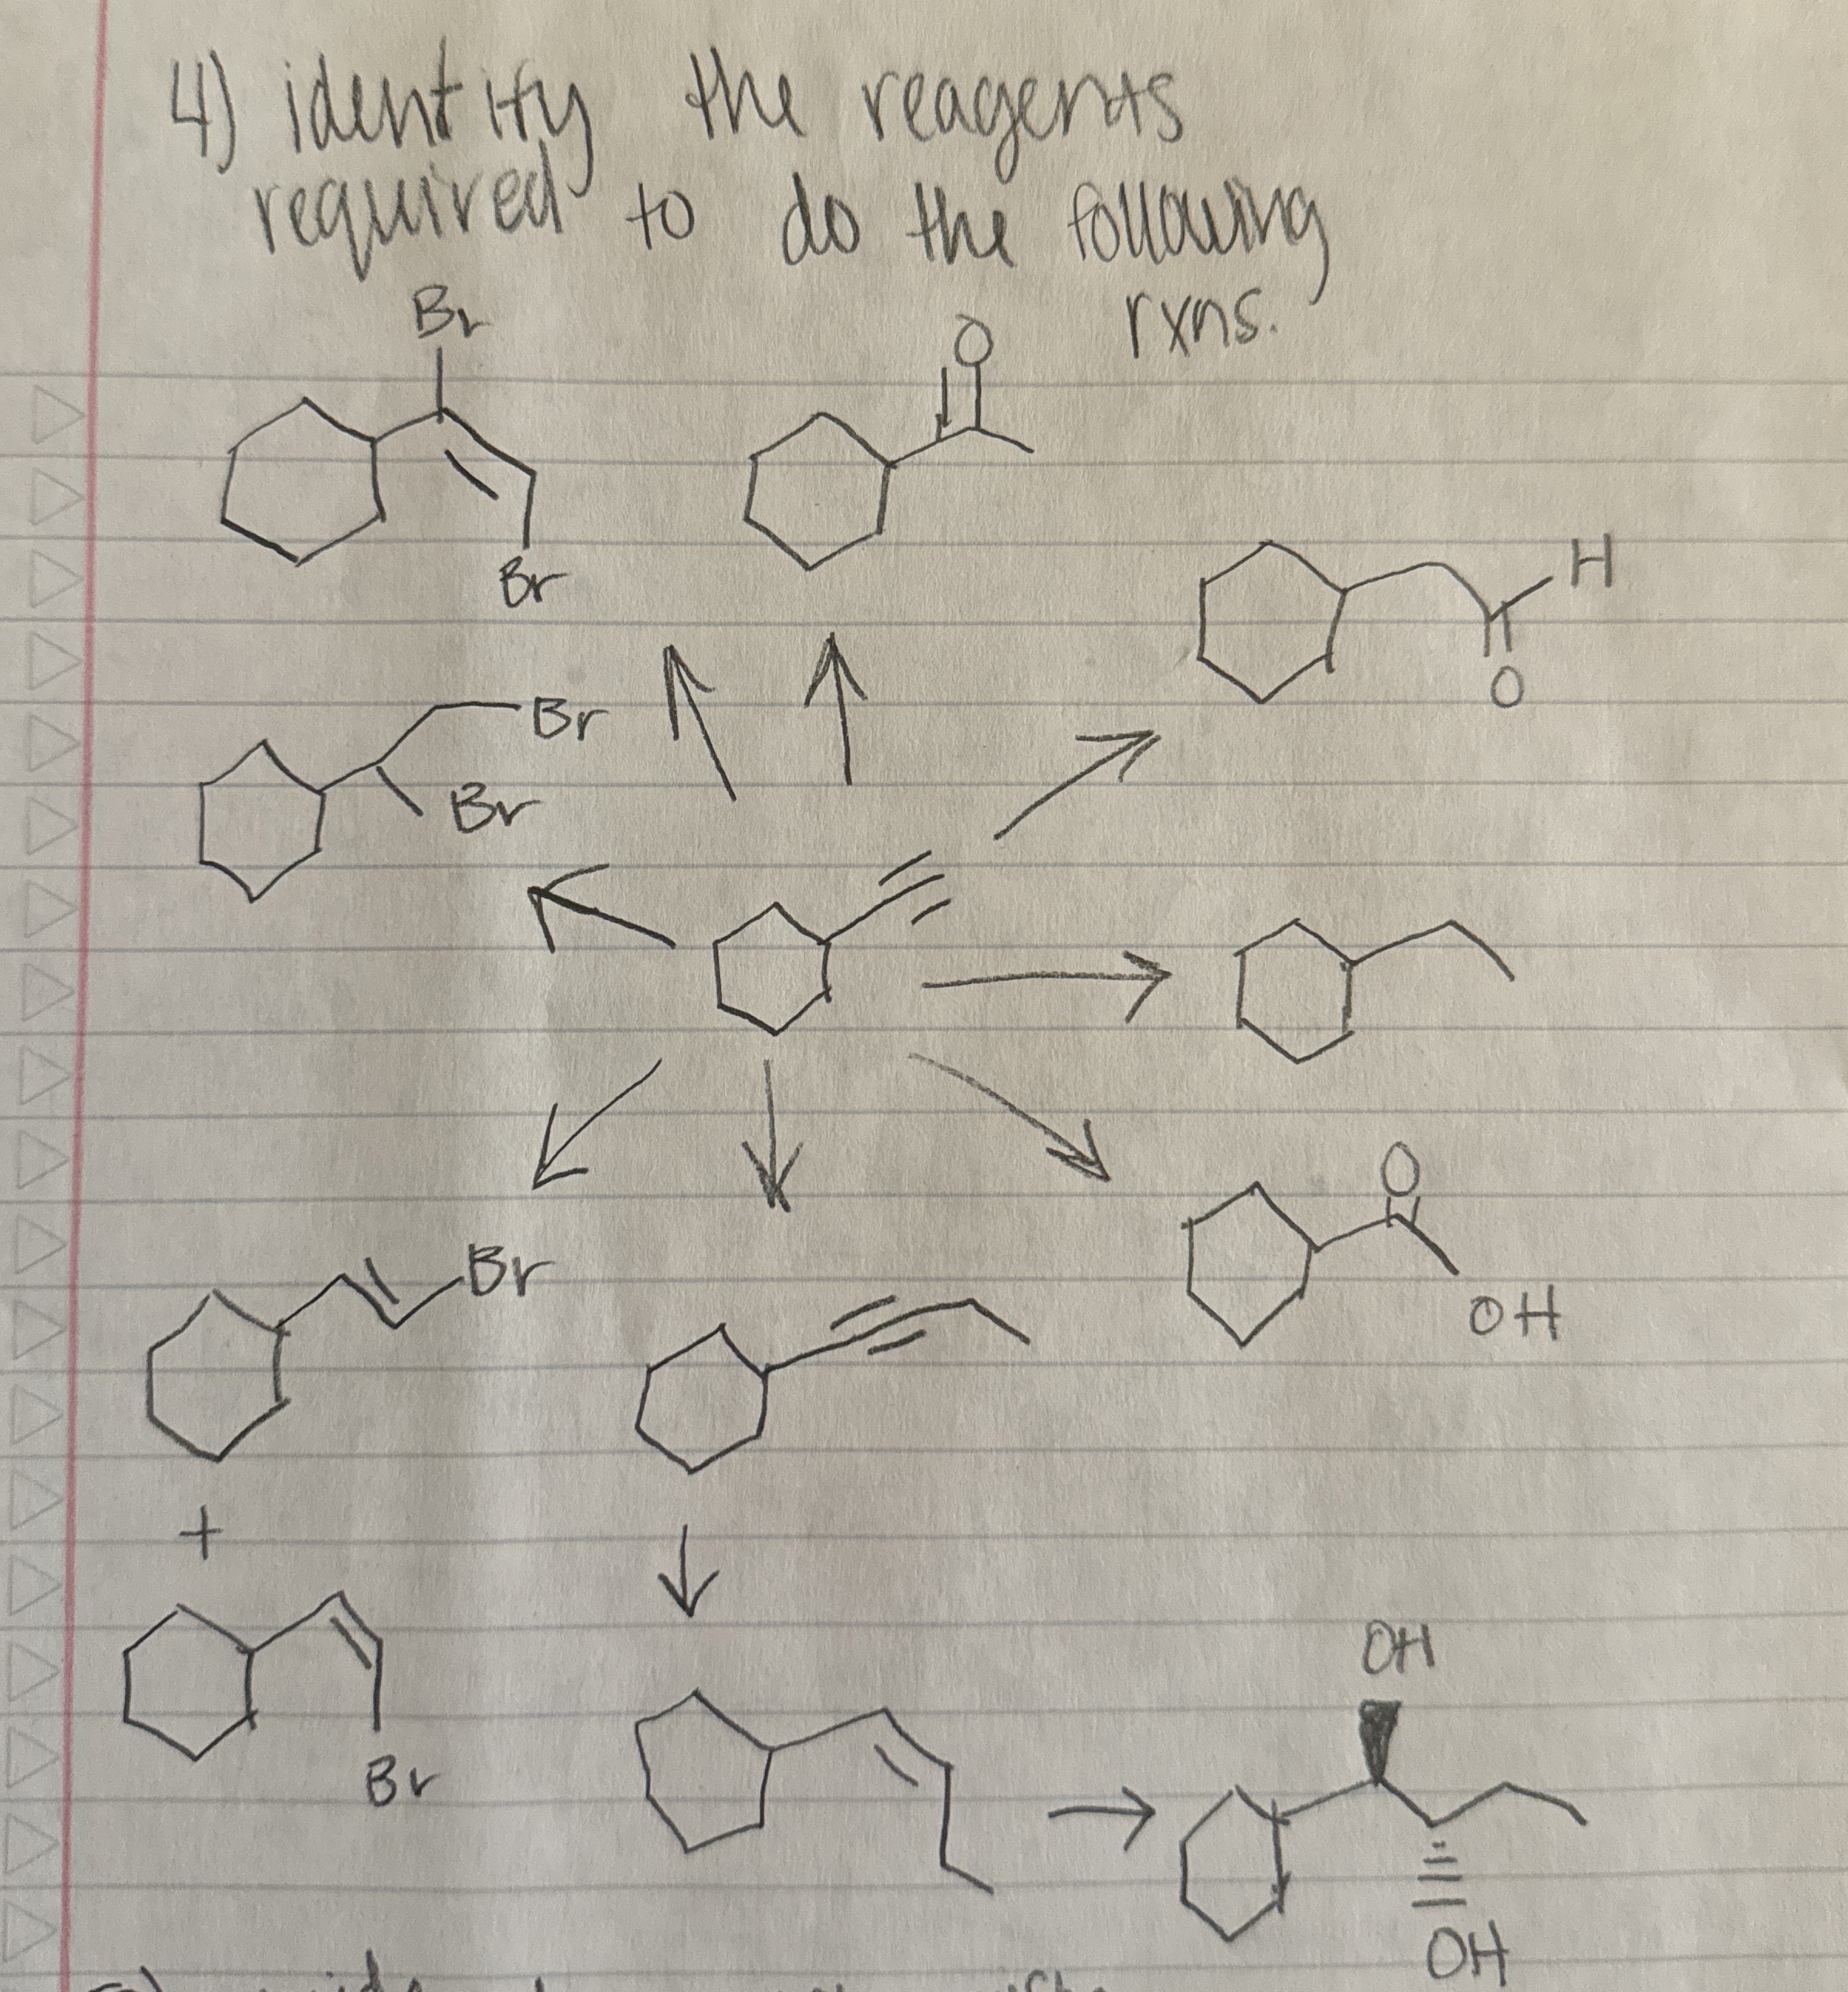 4) identify the reagents
required to do the following
rxns.
Br
O
Br
H
O
Br
Br
Br
O
OH
+
Br
OH
OH